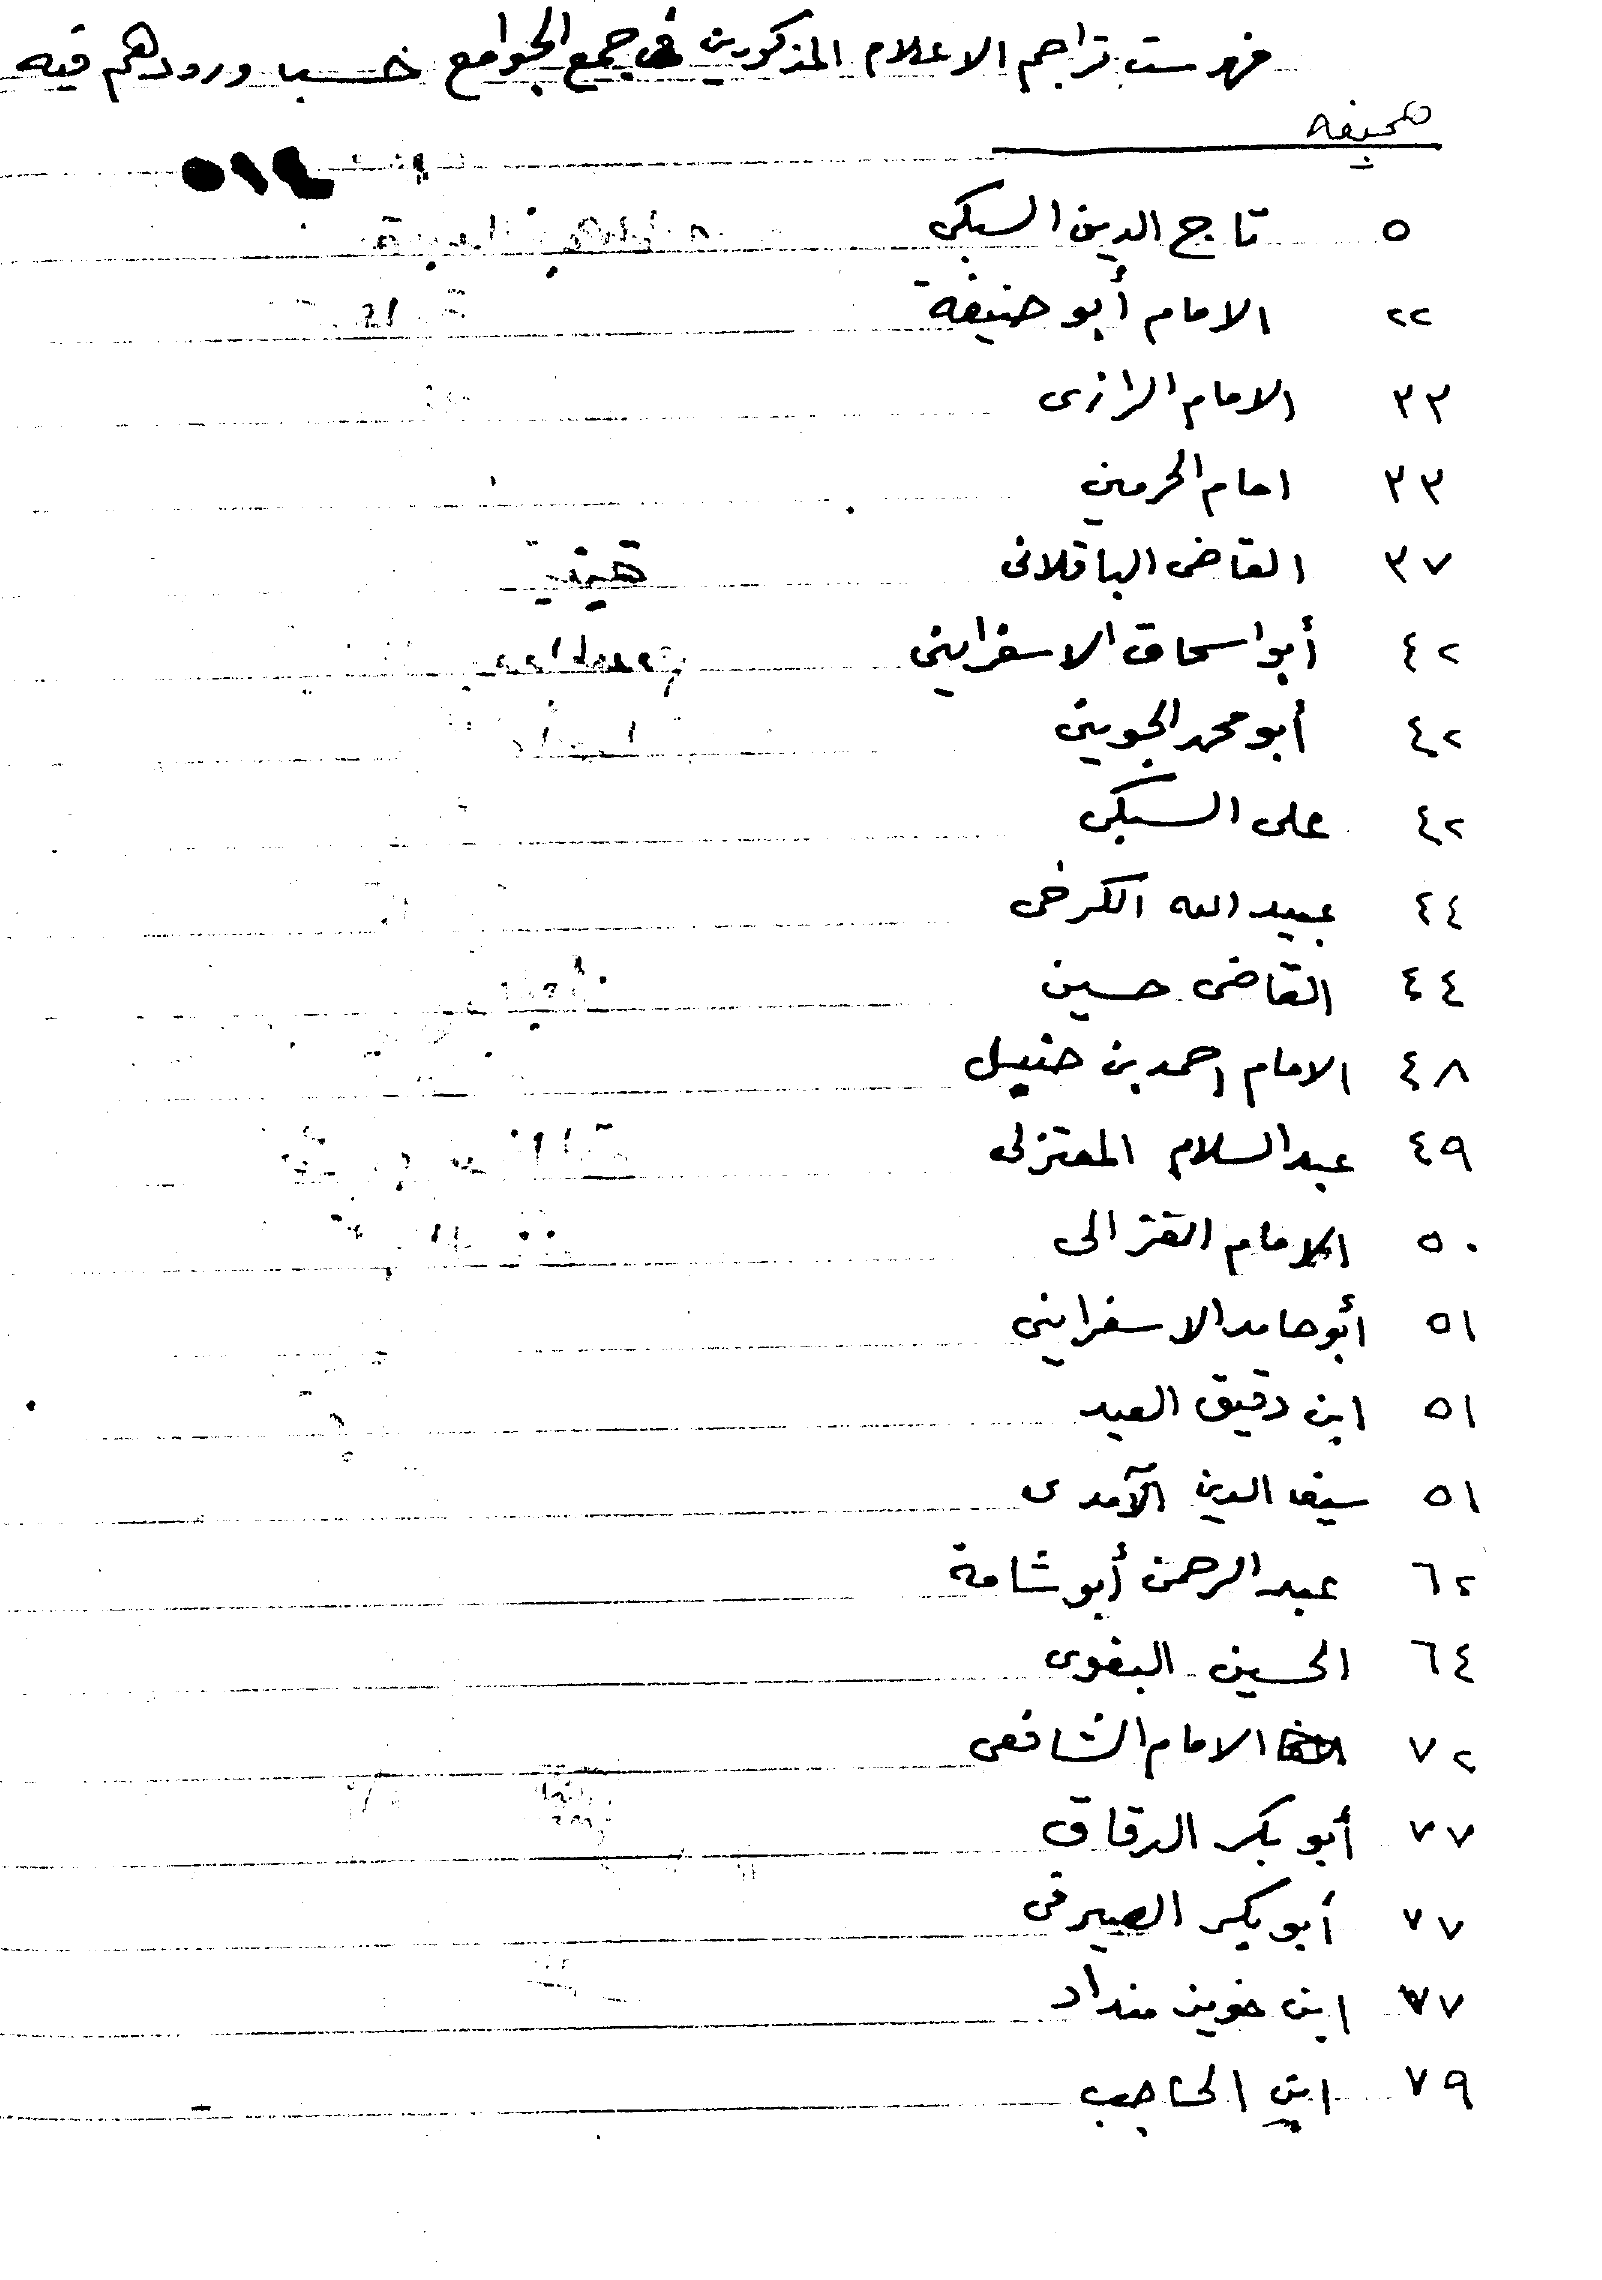 فهرست تراجم الاعلام المذكورين في جمع الجوامع حسب ورودهم فيه
صحيفه
٥١٤
٥ تاج الدين السبكى
٢٢ الامام أبو حنيفة
٣٣ الامام الرازى
٣٣ امام الحرمين
٣٧ القاضى الباقلانى
٤٢ أبو اسحاق الاسفراينى
٤٢ أبو محمد الجوينى
٤٢ على السبكى
٤٤ عبيد الله الكرخى
٤٤ القاضى حسين
٤٨ الامام احمد بن حنبل
٤٩ عبد السلام المعتزلى
٥٠ الامام الغزالى
٥١ أبو حامد الاسفراينى
٥١ ابن دقيق العيد
٥١ سيف الدين الآمدى
٦٢ عبد الرحمن أبو شامة
٦٤ الحسين البغوى
٧٢ الامام الشافعى
٧٧ أبو بكر الدقاق
٧٧ أبو بكر الصيرفى
٧٧ ابن خويز منداد
٧٩ ابن الحاجب